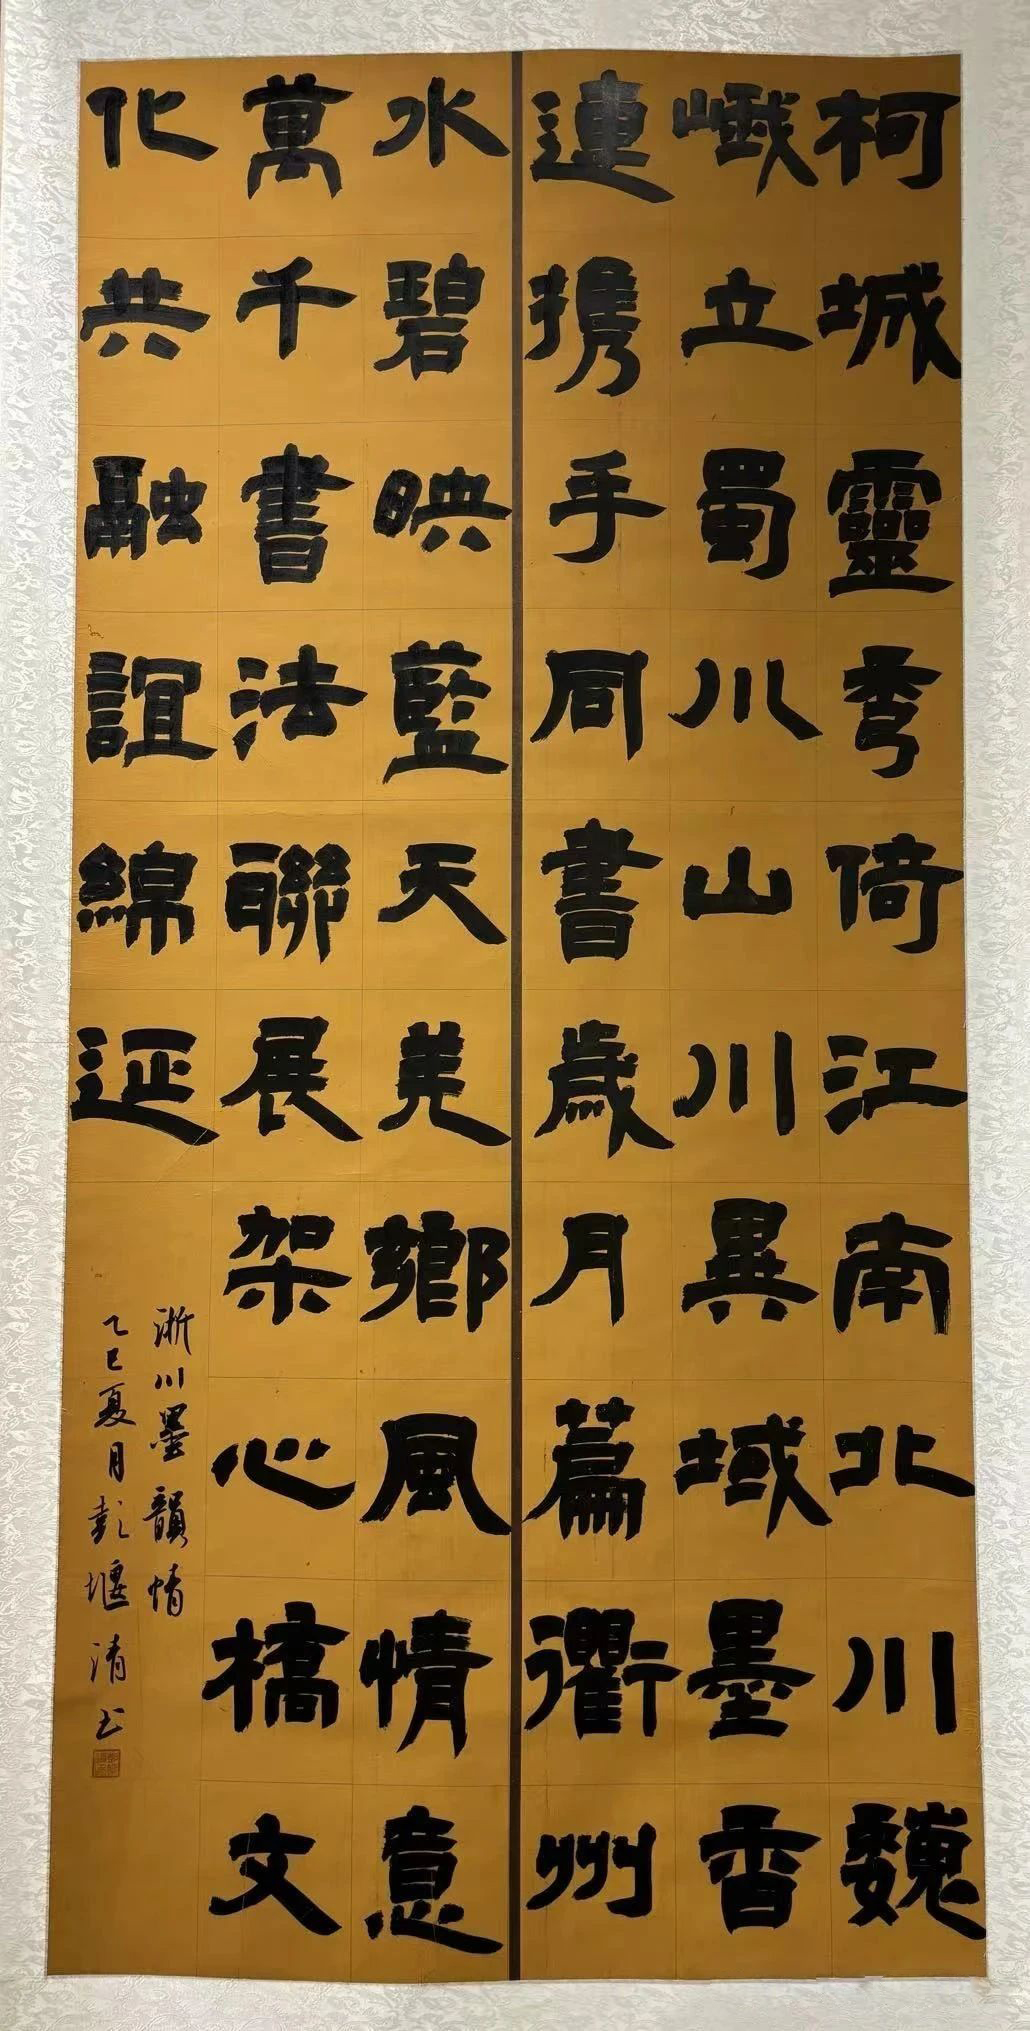 柯城靈秀倚江南北川魏
峨立蜀川山川異域墨香
連携手同書歲月篇衢州
水碧映藍天美鄉風情意
萬千書法聯展架心橋文
化共融誼綿延
浙川墨韻情
乙巳夏月彭堰清书